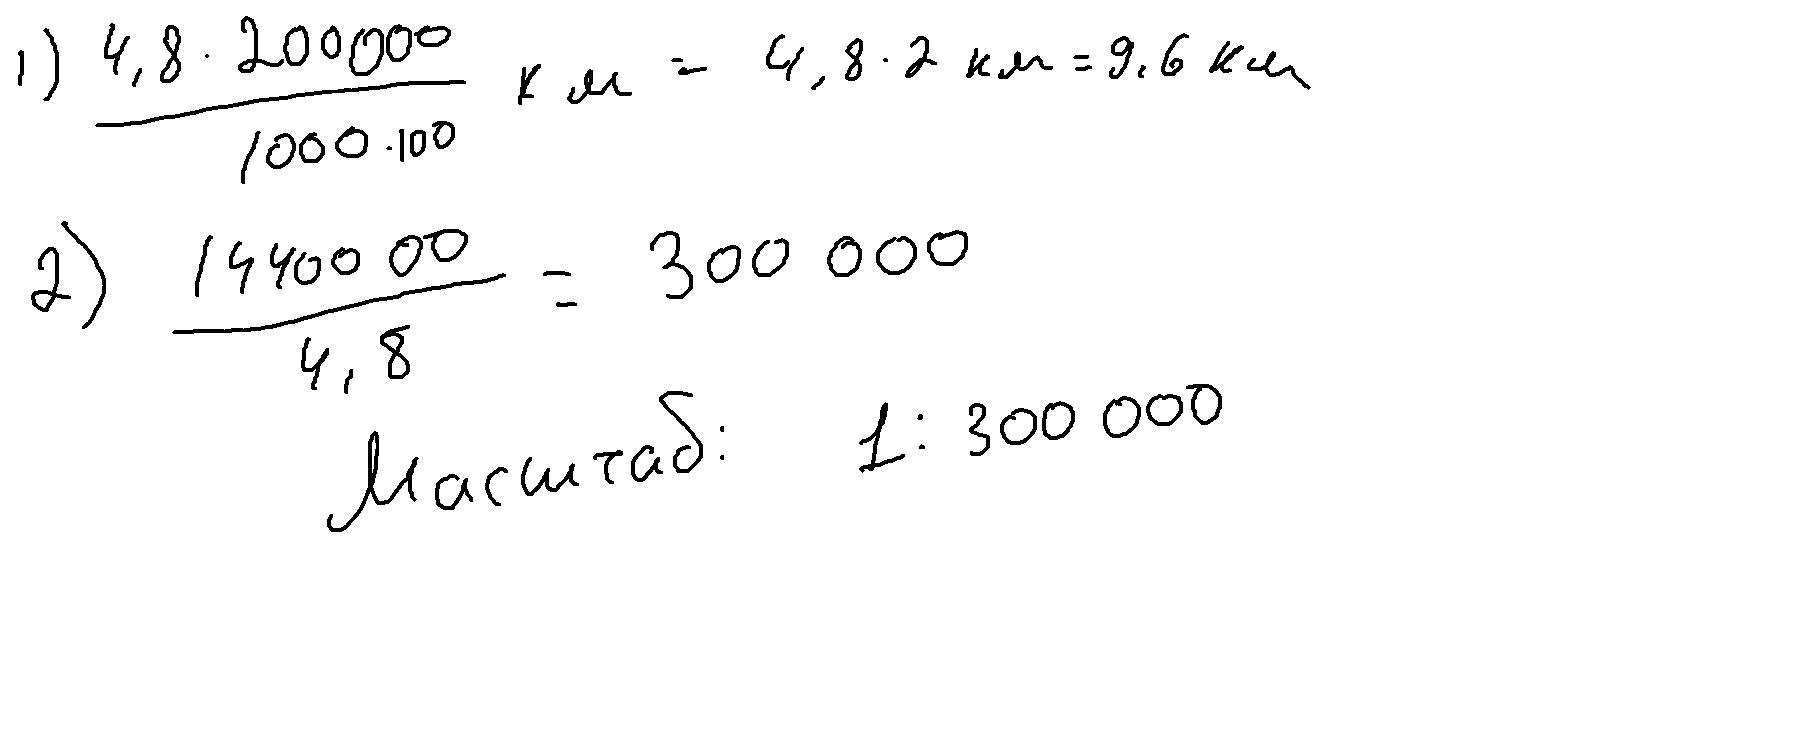 1) 4,8 · 200000 / 1000 · 100 км = 4,8 · 2 км = 9,6 км
2) 14400 00 / 4,8 = 300 000
Масштаб: 1 : 300 000